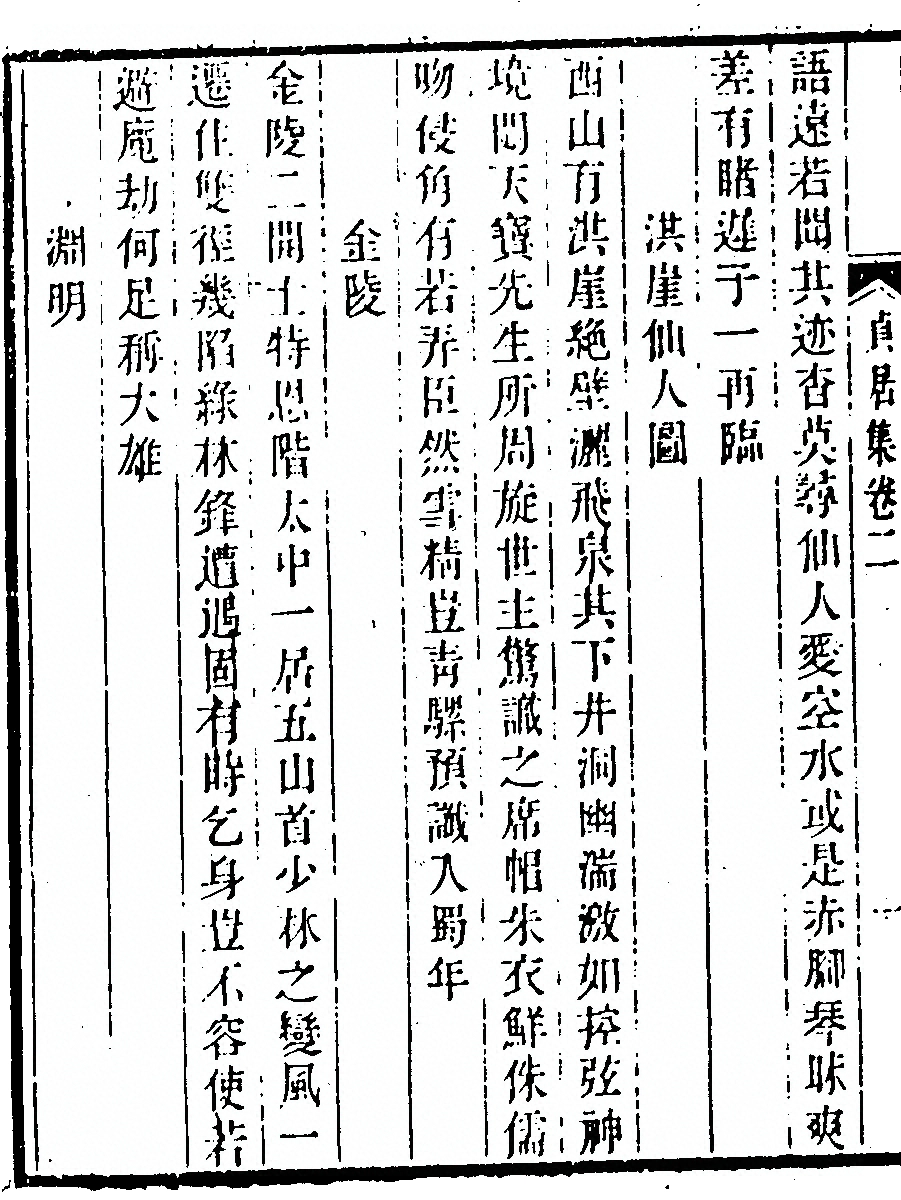 貞居集卷二
語遠若聞其迹杳莫尋仙人愛空水或是赤腳琴昧爽
差有暗遲子一再臨
洪崖仙人圖
西山有洪崖絶壁灑飛泉其下井洞幽湍激如控弦神
境閟天寶先生所周旋世主驚識之席帽朱衣鮮侏儒
吻使角有若弄臣然雪精豈青騾預讖入蜀年
金陵
金陵二開士特恩階太中一居五山首少林之變風一
遷住雙徑幾陷綠林鋒遭遇固有時乞身豈不容使若
遊庵劫何足稱大雄
淵明